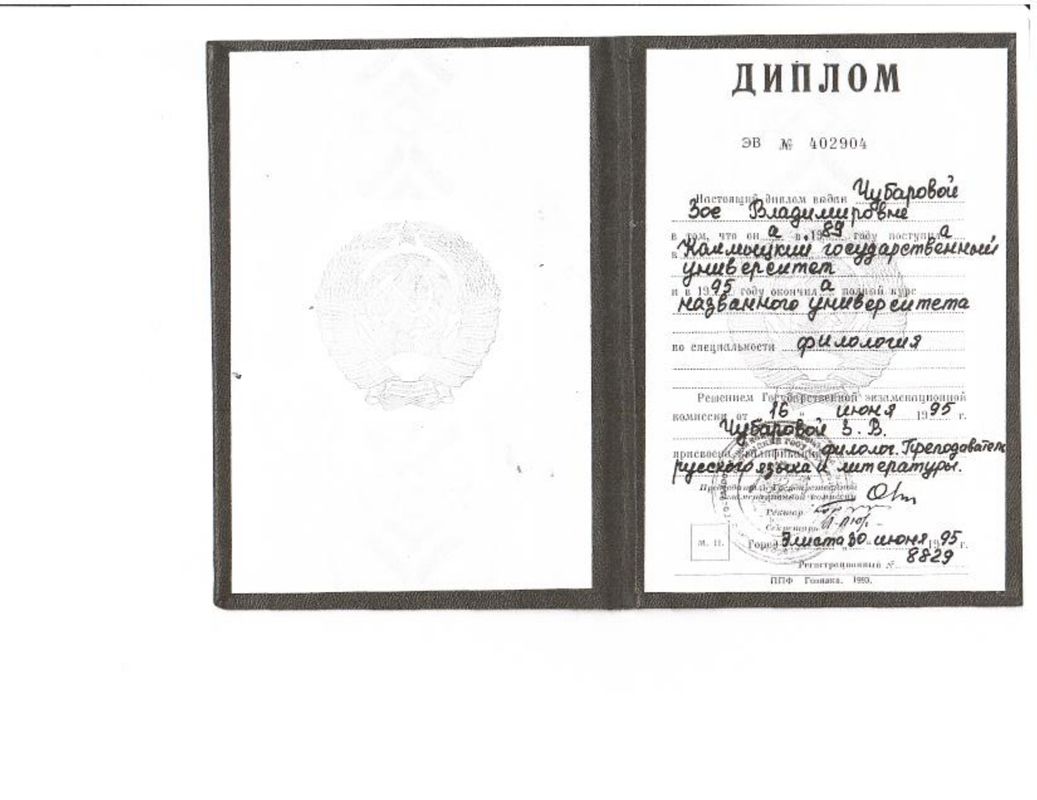 ДИПЛОМ
ЭВ № 402904
Настоящий диплом выдан Чубаровой
Зое Владимировне
в том, что он а в 1989 году поступил а
в Калмыцкий государственный
университет
и в 1995 году окончил а полный курс
названного университета
по специальности филология
Решением Государственной экзаменационной
комиссии от „16“ июня 1995 г.
Чубаровой З. В.
присвоена квалификация филолог. Преподаватель
русского языка и литературы.
Председатель Государственной
экзаменационной комиссии
Ректор
Секретарь
М. П.
Город Элиста 30 июня 1995 г.
Регистрационный № 8829
ППФ Гознака. 1993.